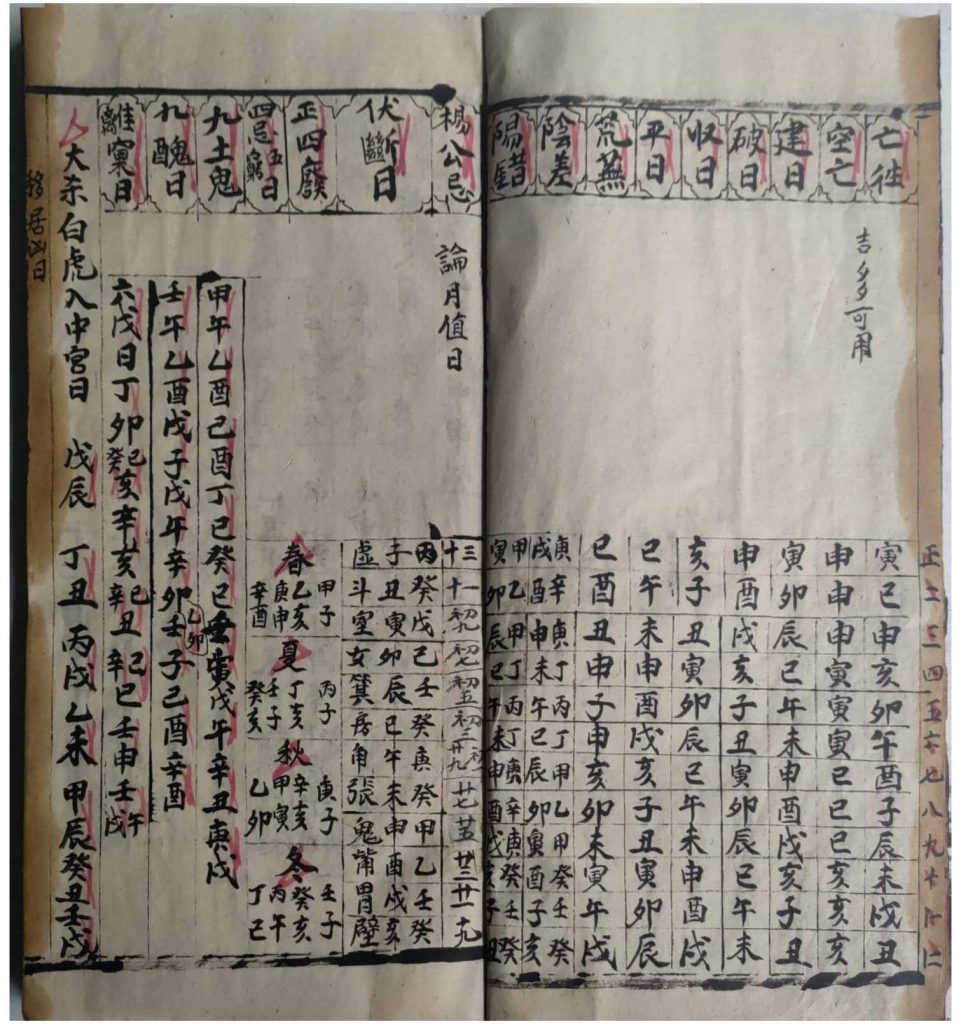 正二三四五六七八九十十一十二
亡往
寅巳申亥卯午酉子辰未戌丑
空亡
吉多可用
申申申寅寅寅巳巳巳亥亥亥
建日
寅卯辰巳午未申酉戌亥子丑
破日
申酉戌亥子丑寅卯辰巳午未
收日
亥子丑寅卯辰巳午未申酉戌
平日
巳午未申酉戌亥子丑寅卯辰
荒蕪
巳酉丑申子申亥卯未寅午戌
陰差
庚辛庚丁丙丁甲乙甲癸壬癸
戌酉申未午巳辰卯寅酉子亥
陽錯
甲乙甲丁丙丁庚辛庚癸壬癸
寅卯辰巳午未申酉戌亥子丑
楊公忌
論月值日
十三 十一 初九 初七 初五 初三 初一 廿九 廿七 廿五 廿三 廿一 十九
伏斷日
丙癸戊己壬癸庚癸甲乙壬癸
子丑寅卯辰巳午未申酉戌亥
虛斗室女箕房角張鬼觜胃壁
正四廢
四忌五窮日
春
甲子
乙亥
庚申
辛酉
夏
丙子
丁亥
壬子
癸亥
秋
庚子
辛亥
甲寅
乙卯
冬
壬子
癸亥
丙午
丁巳
九土鬼
甲午乙酉己酉丁巳癸巳壬寅戊午辛丑庚戌
九醜日
壬午乙酉戊子戊午辛卯壬子己酉辛酉
乙卯
離窠日
六戊日丁卯癸巳亥辛亥辛巳丑辛己巳壬申壬午戌
大杀白虎入中宮日 戊辰 丁丑 丙戌 乙未 甲辰癸丑壬戌
移居凶日